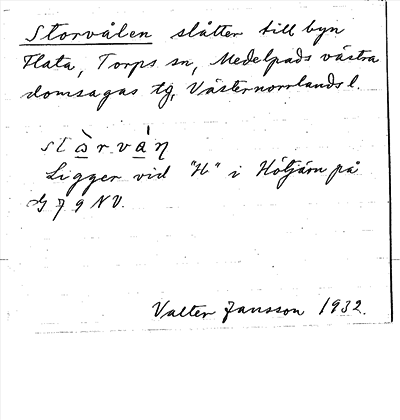 Storvålen slåtter till byn
Flata, Torps sn, Medelpads västra
domsagas tg, Västernorrlands l.
stɷ̀rván
Ligger vid "H" i Hötjärn på
G 79 NV.
Valter Jansson 1932.